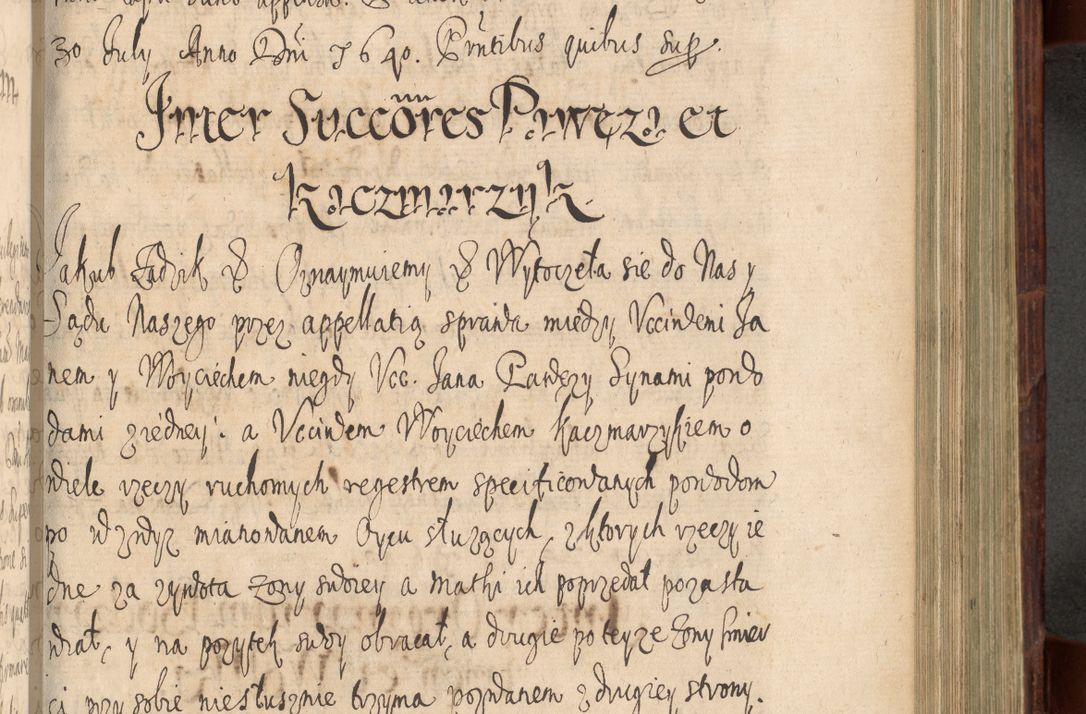 30 July Anno Dni 1640. Prntibus quibus supr.
Inter Succöres Pawęza et
Kaczmarzyk
Jakub Zadzik & Oznaymuiemy & Wytoczeła sie do Nas y
Sądu Naszego przez appellatią sprawa między Ucciwemi Ja
nem y Woyciechem niegdy Ucc. Jana Pawęzy Synami powo
dami z iedney. a Ucciwem Woyciechem Kaczmarzykiem o
wiele rzeczy ruchomych regestrem specificowanych powodom
po wzwyż mianowanem Oycu służących, z ktorych rzeczy ie
dne za zywota zony swoiey a matki ich poprzedał pozasta
wiał, y na pozytek swoy obracał, a drugie po teyze zony smier
ci przy sobie niesłusznie trzyma pozwanem z drugiey strony.